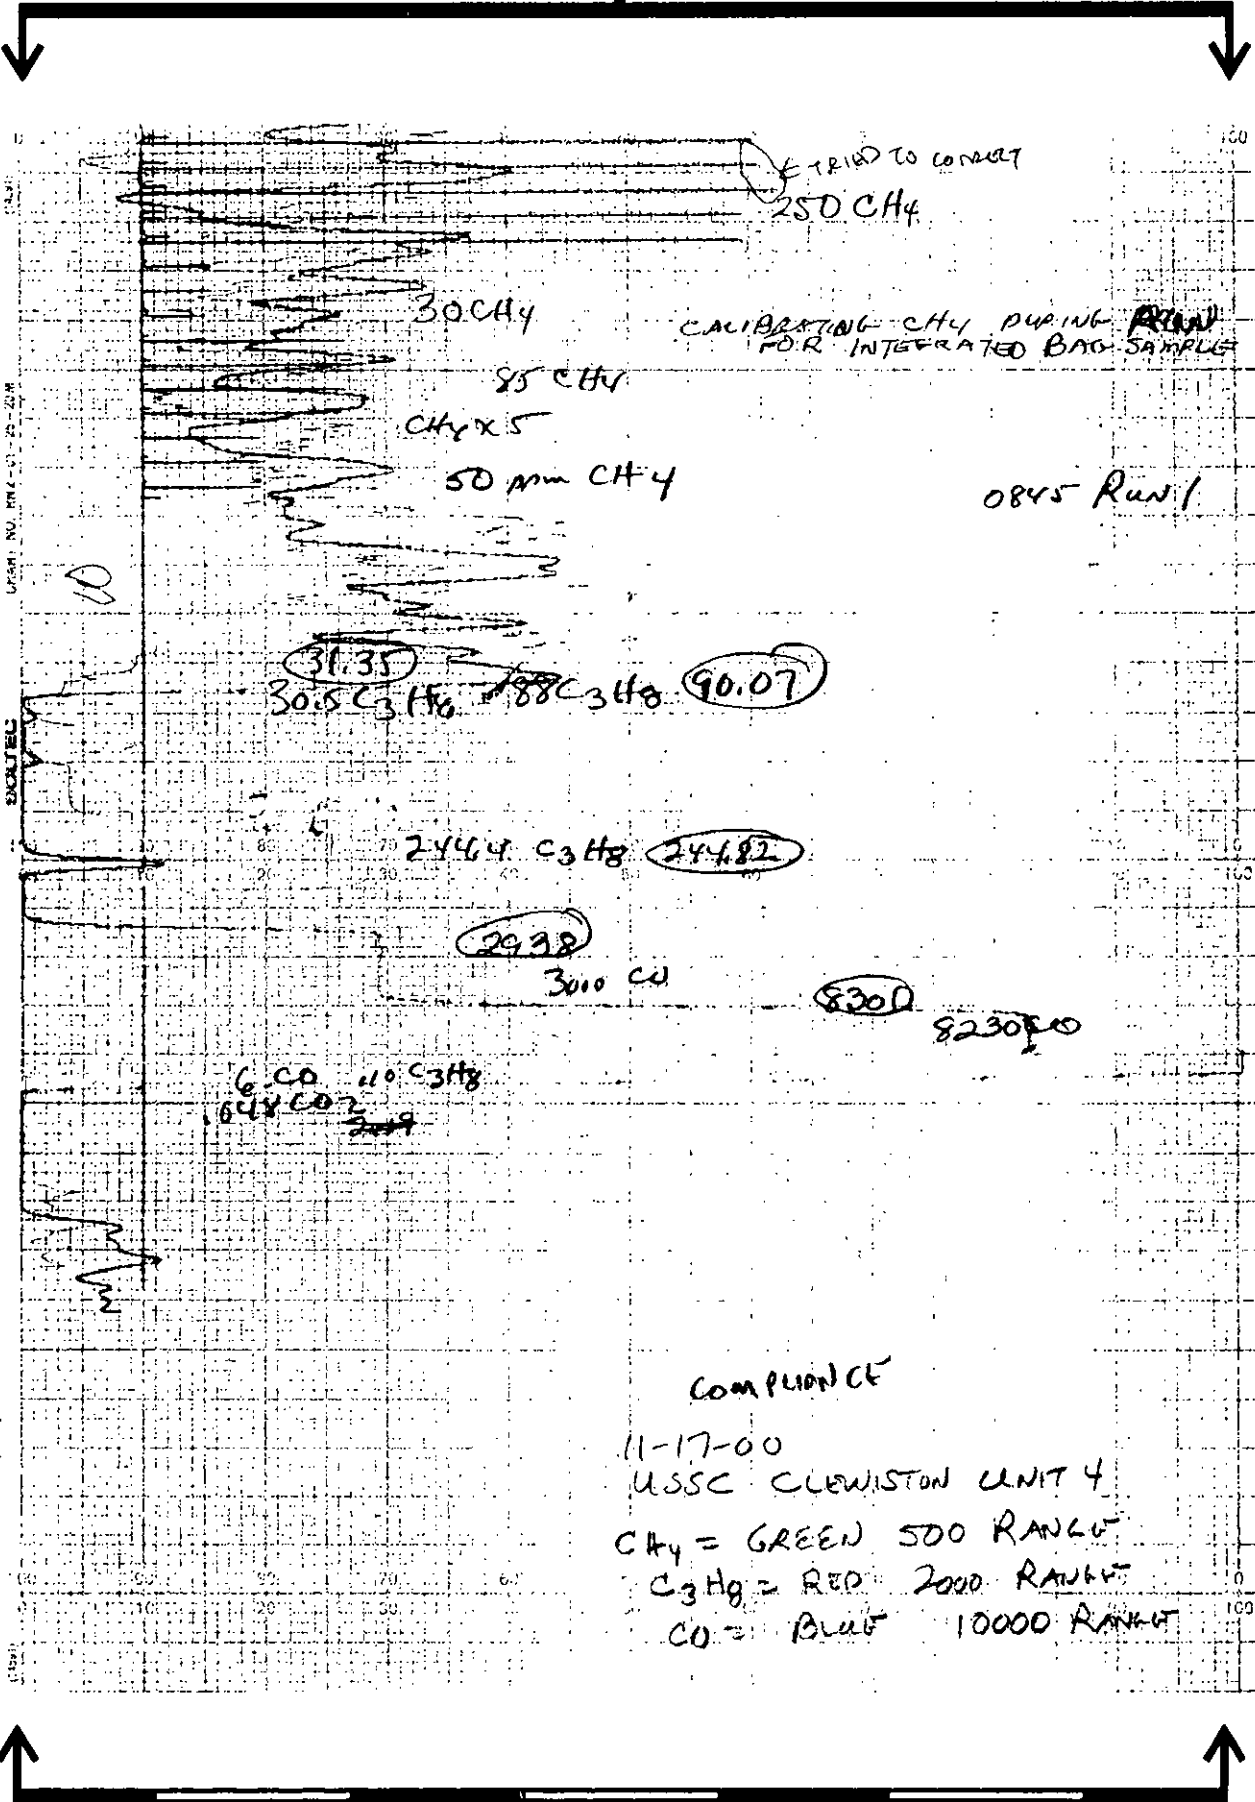 100
← TRIED TO CONVERT
250 CH4
30 CH4
CALIBRATING CH4 DURING RUN
FOR INTEGRATED BAG SAMPLE
85 CH4
CH4 x 5
50 ppm CH4
0845 RUN 1
31.35
30.5 C3H8 88 C3H8 90.07
244.4 C3H8 244.82
80 70
20 30 40 50 60 100
2938
3000 CO
8300
8230 CO
6 CO .10 C3H8
.048 CO2
COMPLIANCE
11-17-00
USSC CLEWISTON UNIT 4
CH4 = GREEN 500 RANGE
C3H8 = RED 2000 RANGE
CO = BLUE 10000 RANGE
70
10 20 30 100